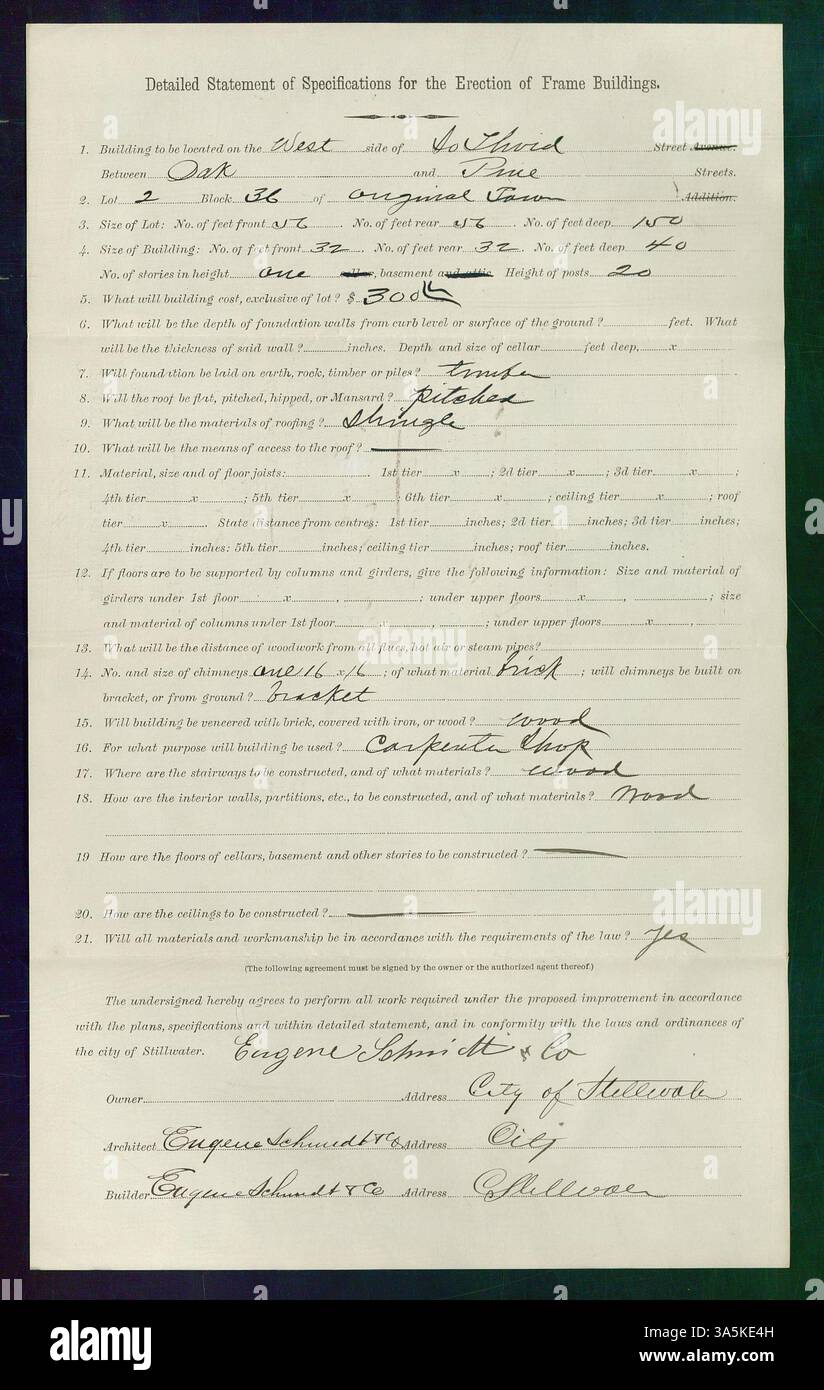 Detailed Statement of Specifications for the Erection of Frame Buildings.
1. Building to be located on the West side of So Third Street Avenue.
Between Oak and Pine Streets.
2. Lot 2 Block 36 of Original Town Addition.
3. Size of Lot: No. of feet front 56. No. of feet rear 56. No. of feet deep 150
4. Size of Building: No. of feet front 32. No. of feet rear 32. No. of feet deep 40
No. of stories in height one cellar, basement and attic Height of posts 20
5. What will building cost, exclusive of lot? $ 300
6. What will be the depth of foundation walls from curb level or surface of the ground? feet. What
will be the thickness of said wall? inches. Depth and size of cellar feet deep, x
7. Will foundation be laid on earth, rock, timber or piles? timber
8. Will the roof be flat, pitched, hipped, or Mansard? pitched
9. What will be the materials of roofing? Shingle
10. What will be the means of access to the roof?
11. Material, size and of floor joists: 1st tier x ; 2d tier x ; 3d tier x ;
4th tier x ; 5th tier x ; 6th tier x ; ceiling tier x ; roof
tier x . State distance from centres: 1st tier inches; 2d tier inches; 3d tier inches;
4th tier inches: 5th tier inches; ceiling tier inches; roof tier inches.
12. If floors are to be supported by columns and girders, give the following information: Size and material of
girders under 1st floor x , ; under upper floors x , ; size
and material of columns under 1st floor , ; under upper floors x ,
13. What will be the distance of woodwork from all flues, hot air or steam pipes?
14. No. and size of chimneys one 16 x 16 ; of what material brick ; will chimneys be built on
bracket, or from ground? bracket
15. Will building be veneered with brick, covered with iron, or wood? wood
16. For what purpose will building be used? Carpenter Shop
17. Where are the stairways to be constructed, and of what materials? wood
18. How are the interior walls, partitions, etc., to be constructed, and of what materials? wood
19 How are the floors of cellars, basement and other stories to be constructed?
20. How are the ceilings to be constructed?
21. Will all materials and workmanship be in accordance with the requirements of the law? yes
(The following agreement must be signed by the owner or the authorized agent thereof.)
The undersigned hereby agrees to perform all work required under the proposed improvement in accordance
with the plans, specifications and within detailed statement, and in conformity with the laws and ordinances of
the city of Stillwater. Eugene Schmidt & Co
Owner Address City of Stillwater
Architect Eugene Schmidt & Co Address City
Builder Eugene Schmidt & Co Address Stillwater
alamy
Image ID: 3A5KE4H
www.alamy.com